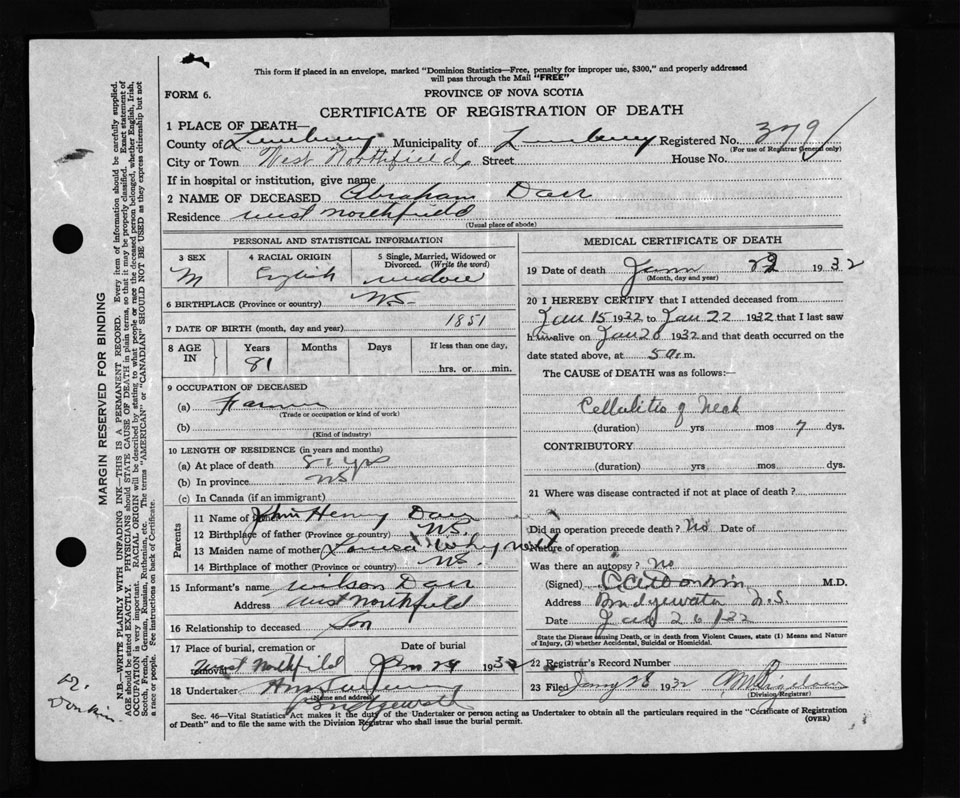 This form if placed in an envelope, marked "Dominion Statistics—Free, penalty for improper use, $300," and properly addressed
will pass through the Mail "FREE"
FORM 6.
PROVINCE OF NOVA SCOTIA
CERTIFICATE OF REGISTRATION OF DEATH
1 PLACE OF DEATH—
County of Lunenburg Municipality of Lunenburg Registered No. 379
(For use of Registrar General only)
City or Town West Northfield, Street House No.
If in hospital or institution, give name
2 NAME OF DECEASED Abraham Darr
Residence West Northfield
(Usual place of abode)
PERSONAL AND STATISTICAL INFORMATION
3 SEX 4 RACIAL ORIGIN 5 Single, Married, Widowed or
Divorced. (Write the word)
M English
6 BIRTHPLACE (Province or country) NS
7 DATE OF BIRTH (month, day and year) 1851
8 AGE IN Years Months Days If less than one day,
81 hrs. or min.
9 OCCUPATION OF DECEASED
(a) Farmer
(Trade or occupation or kind of work)
(b)
(Kind of industry)
10 LENGTH OF RESIDENCE (in years and months)
(a) At place of death 81 yrs
(b) In province NS
(c) In Canada (if an immigrant)
Parents
11 Name of John Henry Darr
12 Birthplace of father (Province or country) NS.
13 Maiden name of mother Louisa
14 Birthplace of mother (Province or country) NS.
15 Informant's name Wilson Darr
Address West Northfield
16 Relationship to deceased Son
17 Place of burial or removal Date of burial
West Northfield Jan 24 1932
18 Undertaker
(Name and address)
Bridgewater
MEDICAL CERTIFICATE OF DEATH
19 Date of death 1932
(Month, day and year)
20 I HEREBY CERTIFY that I attended deceased from
Jan 15 1932 to Jan 22 1932 that I last saw
him alive on Jan 20 1932 and that death occurred on the
date stated above, at 5 a.m.
The CAUSE of DEATH was as follows:—
Cellulitis of Neck
(duration) yrs mos 7 dys.
CONTRIBUTORY
(duration) yrs mos dys.
21 Where was disease contracted if not at place of death?
Did an operation precede death? No Date of
Nature of operation
Was there an autopsy? No
(Signed) M.D.
Address Bridgewater N.S.
Date Jan 26/32
State the Disease causing Death, or in death from Violent Causes, state (1) Means and Nature
of Injury, (2) whether Accidental, Suicidal or Homicidal.
22 Registrar's Record Number
23 Filed Jany 28 1932
(Division Registrar)
Sec. 46—Vital Statistics Act makes it the duty of the Undertaker or person acting as Undertaker to obtain all the particulars required in the "Certificate of Registration
of Death" and to file the same with the Division Registrar who shall issue the burial permit.
(OVER)
MARGIN RESERVED FOR BINDING
N.B.—WRITE PLAINLY WITH UNFADING INK—THIS IS A PERMANENT RECORD. Every item of information should be carefully supplied.
AGE should be stated EXACTLY. PHYSICIANS should STATE CAUSE OF DEATH in plain terms, so that it may be properly classified. Exact statement of
OCCUPATION is very important. RACIAL ORIGIN will be described by stating to what people or race the deceased person belonged, whether English, Irish,
Scotch, French, German, Russian, Ruthenian, etc. The terms "AMERICAN" or "CANADIAN" SHOULD NOT BE USED as they express citizenship but not
a race or people. See instructions on back of Certificate.
Dr.
Donkin